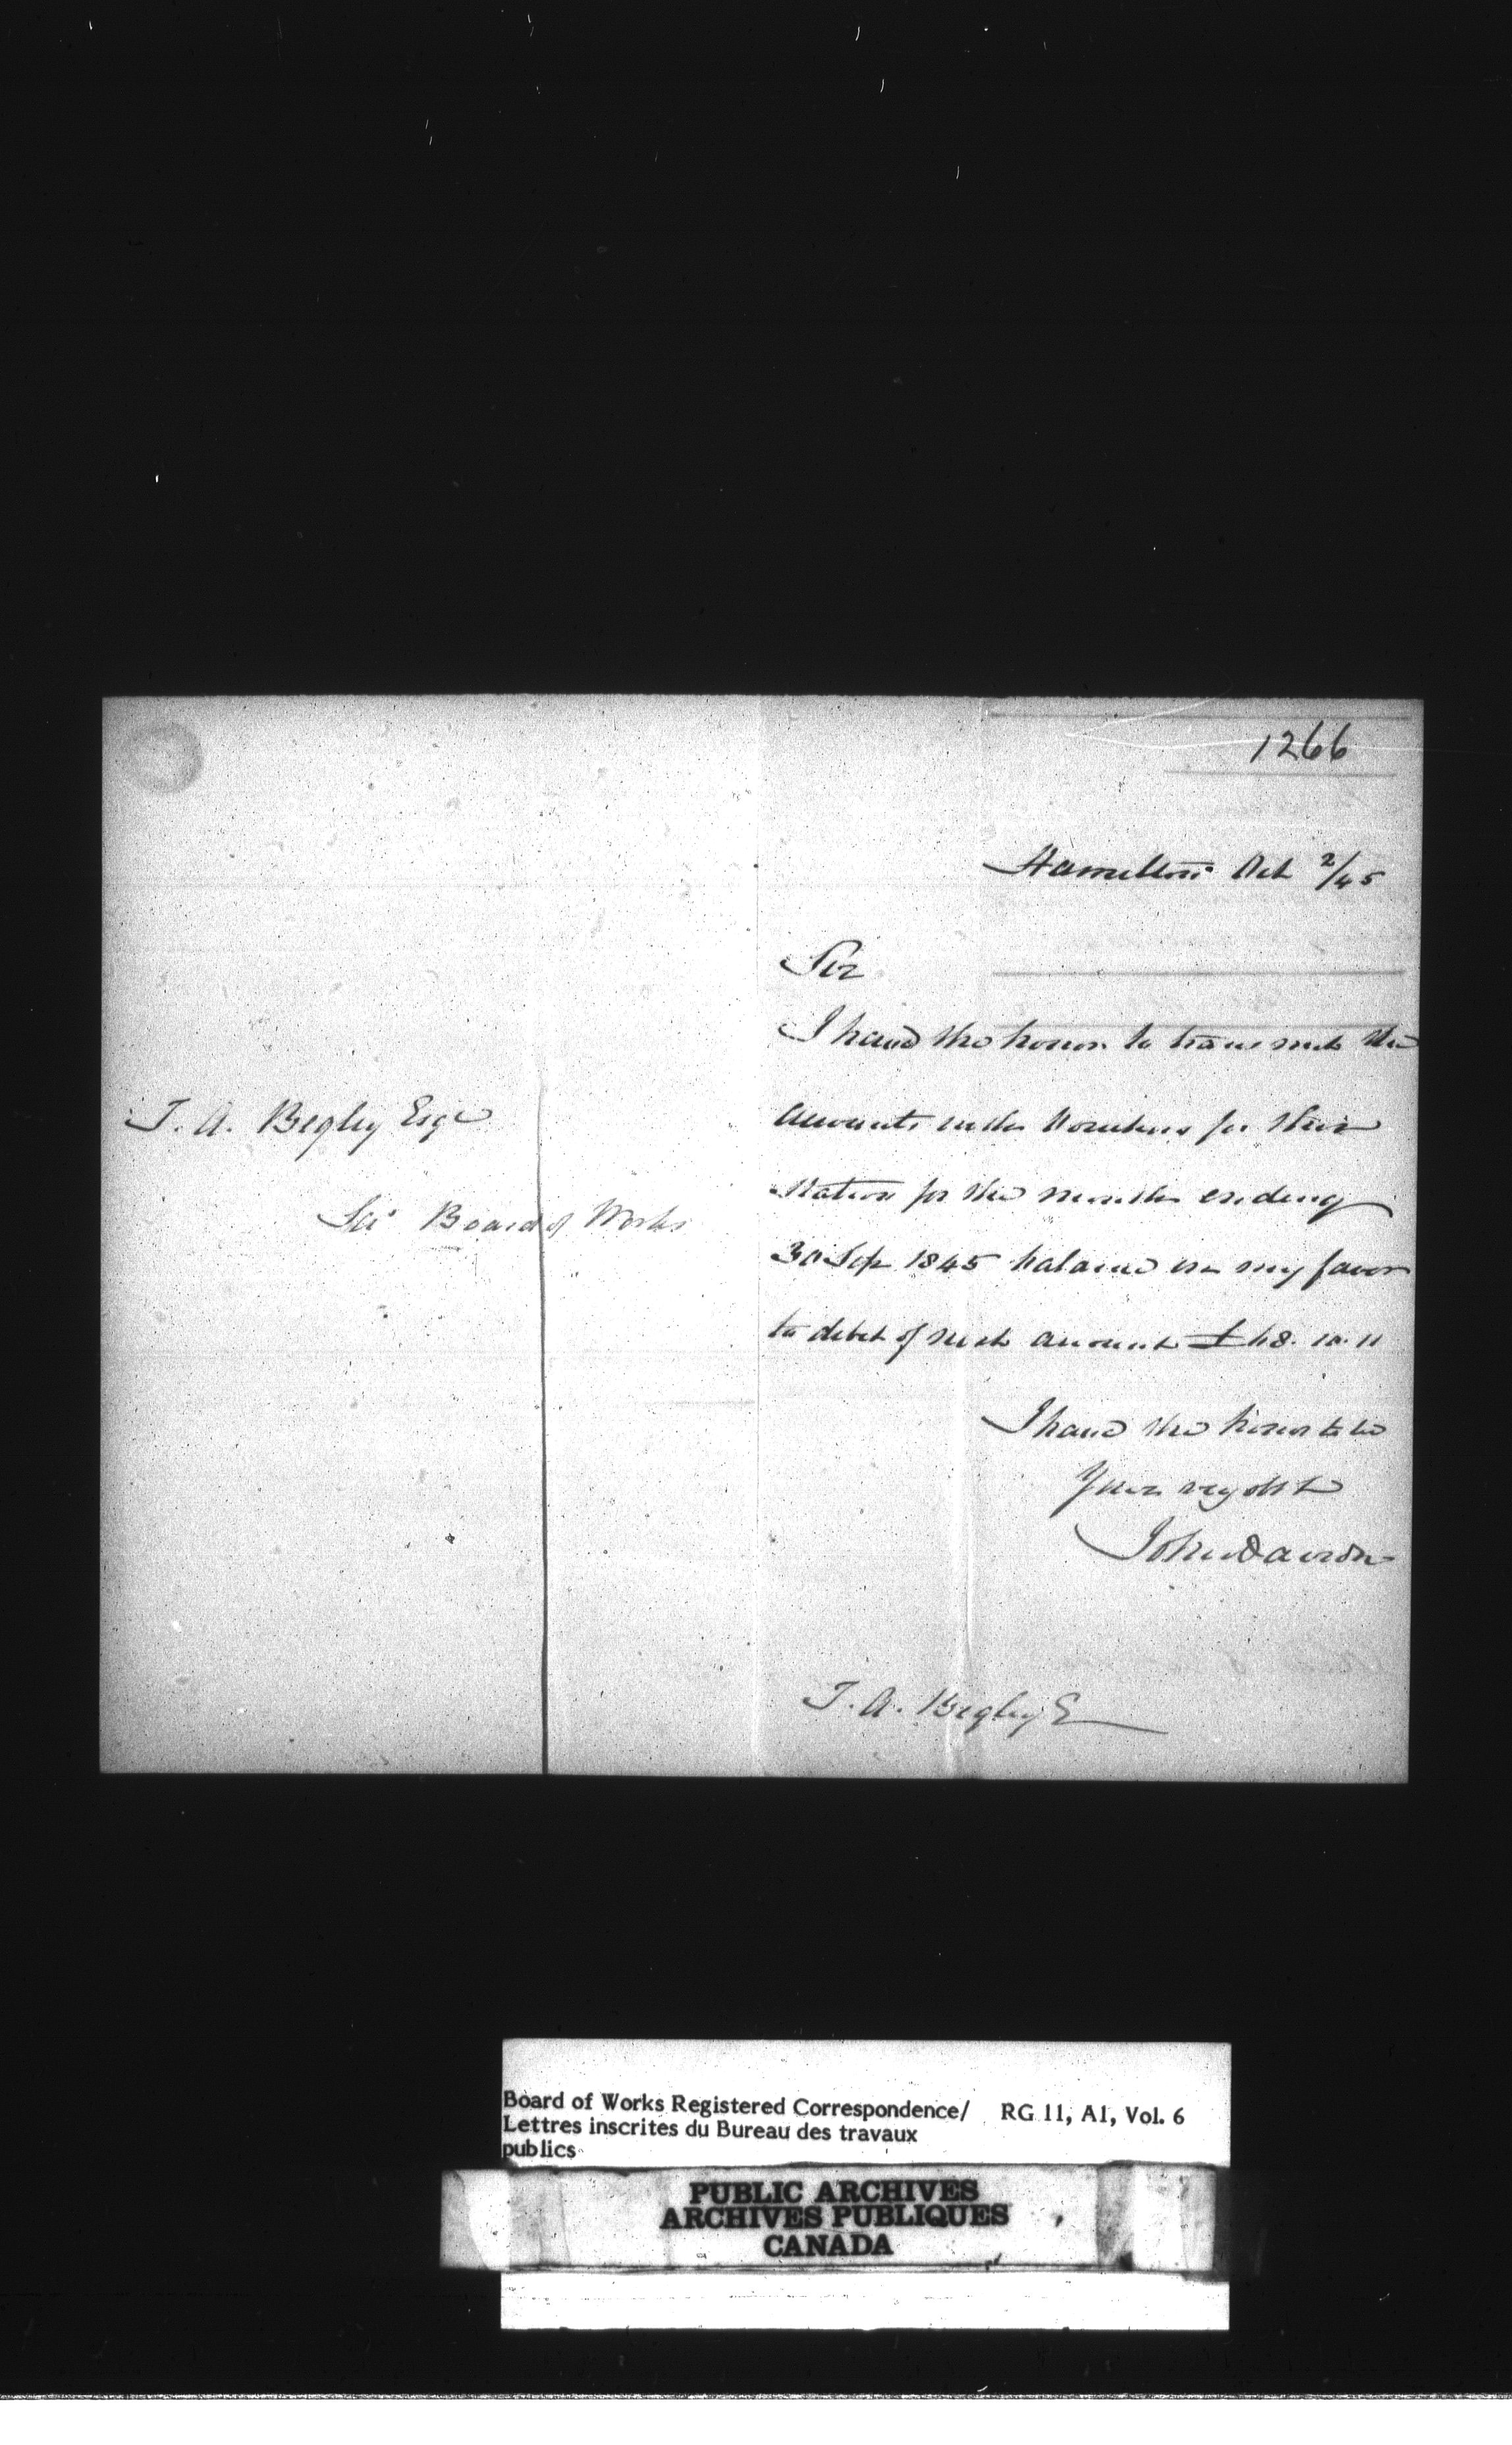 1266
Hamilton Oct 2/45
Sir
I have the honor to transmit the
accounts with Vouchers for this
Station for the month ending
30 Sep 1845 balance in my favor
to debit of next amount £48. 10. 11
I have the honor to be
Your
John Davidson
T. A. Begley E
T. A. Begley Esqe
Sec Board of Works
Board of Works Registered Correspondence/ RG 11, A1, Vol. 6
Lettres inscrites du Bureau des travaux
publics
PUBLIC ARCHIVES
ARCHIVES PUBLIQUES
CANADA